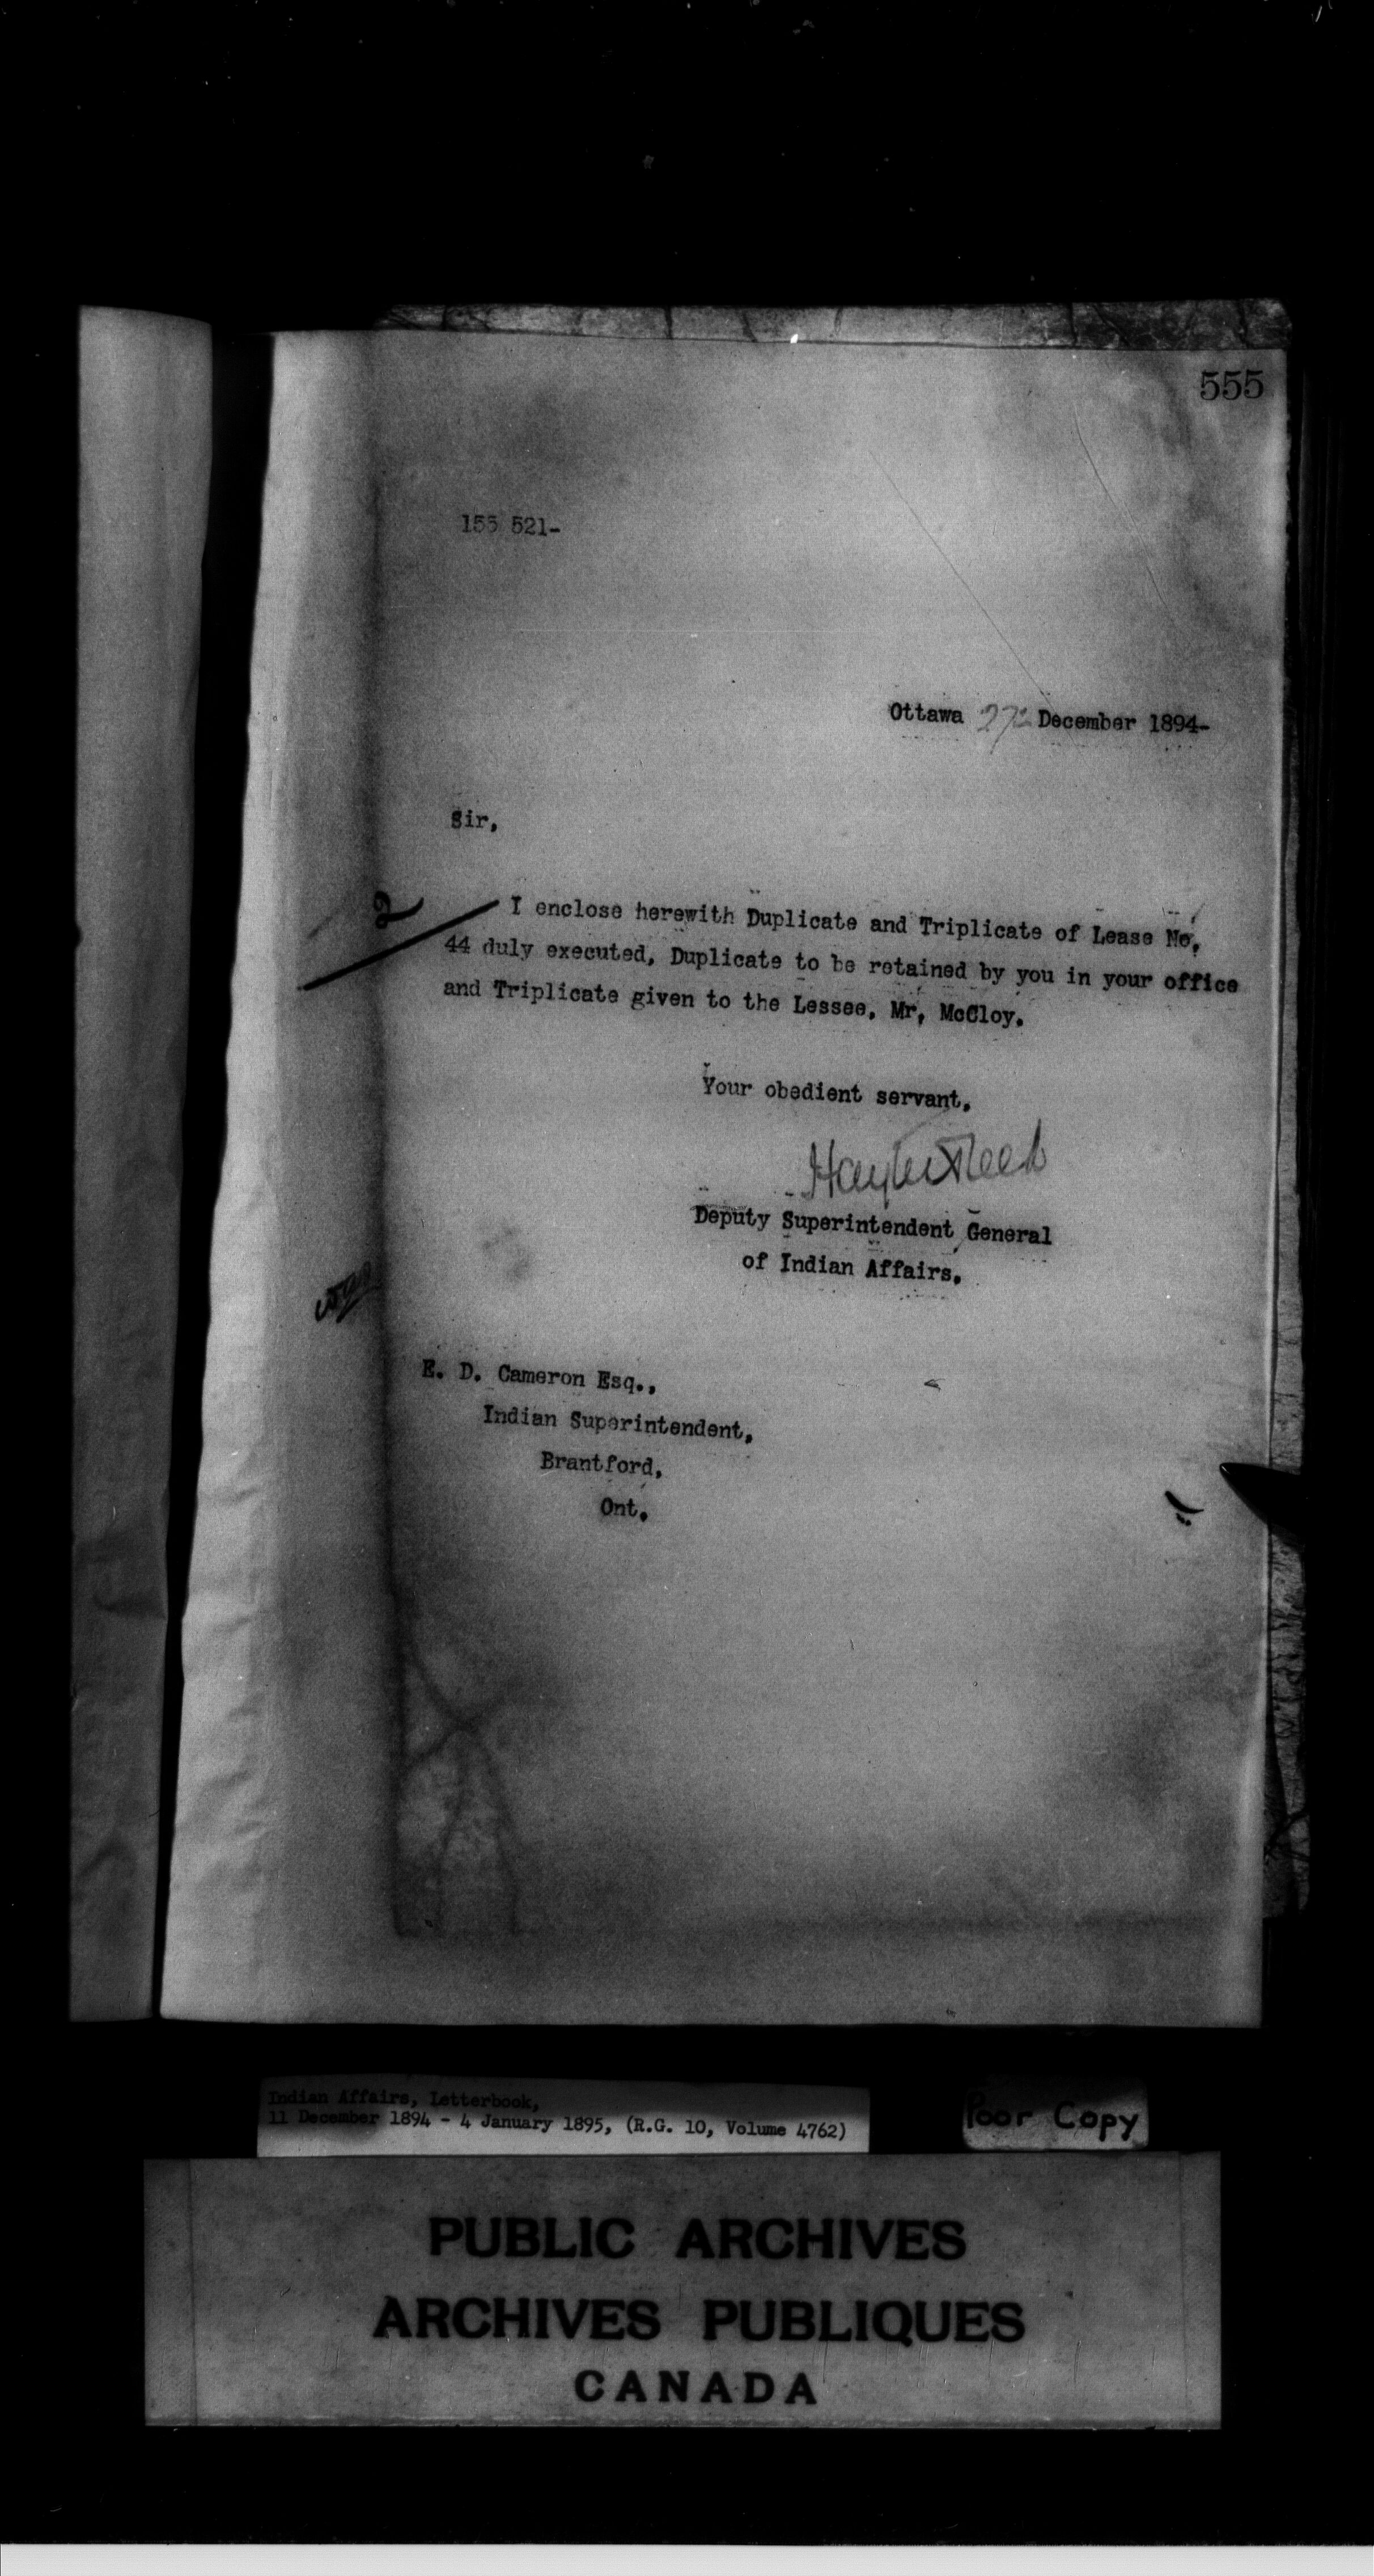 555
155 521-
Ottawa 27th December 1894-
Sir,
I enclose herewith Duplicate and Triplicate of Lease No.
44 duly executed, Duplicate to be retained by you in your office
and Triplicate given to the Lessee, Mr, McCloy.
Your obedient servant,
Hayter Reed
Deputy Superintendent General
of Indian Affairs.
E. D. Cameron Esq.,
Indian Superintendent,
Brantford,
Ont.
Indian Affairs, Letterbook,
11 December 1894 - 4 January 1895, (R.G. 10, Volume 4762)
Poor Copy
PUBLIC ARCHIVES
ARCHIVES PUBLIQUES
CANADA